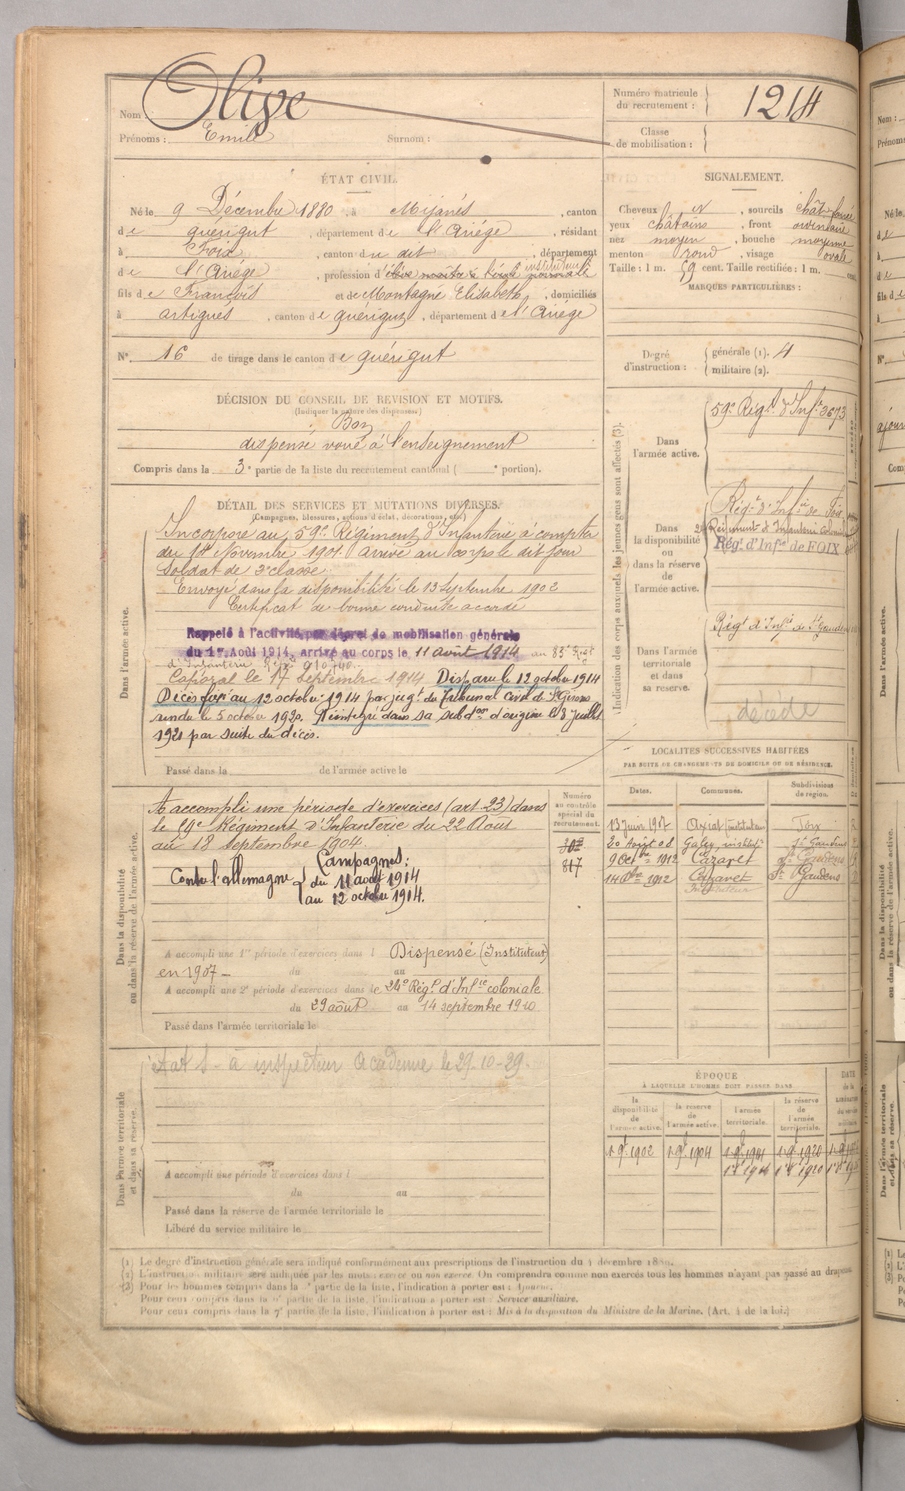 Nom Olive
Prénoms : Emile Surnom :
Numéro matricule du recrutement : 1214
Classe de mobilisation :
ÉTAT CIVIL.
Né le 9 Décembre 1880, à Mijanès, canton
de quérigut, département de l'Ariège, résidant
à Foix, canton du dit, département
de l'Ariège, profession d'élève maître à l'école normale instituteur
fils de François et de Montagné Elisabeth, domiciliés
à artigues, canton de quérigut, département de l'Ariège
N° 16 de tirage dans le canton de quérigut
SIGNALEMENT.
Cheveux et, sourcils chât. foncé
yeux châtains, front ordinaire
nez moyen, bouche moyenne
menton rond, visage ovale
Taille : 1 m. 59 cent. Taille rectifiée : 1 m. cent.
MARQUES PARTICULIÈRES :
Degré d'instruction : générale (1). 4
militaire (2).
DÉCISION DU CONSEIL DE REVISION ET MOTIFS.
(Indiquer la nature des dispenses)
Bon
dispensé voué à l'enseignement
Compris dans la 3e partie de la liste du recrutement cantonal ( e portion).
DÉTAIL DES SERVICES ET MUTATIONS DIVERSES.
(Campagnes, blessures, actions d'éclat, décorations, etc.)
Dans l'armée active.
Incorporé au 59e Régiment d'Infanterie à compter
du Novembre 1901. arrivé au corps le dit jour
Soldat de 2e classe.
Envoyé dans la disponibilité le 13 Septembre 1902
Certificat de bonne conduite accordé
Rappelé à l'activité par décret de mobilisation générale
du 1er Août 1914, arrivé au corps le 11 août 1914 au 83e Régt
d'Infanterie
Caporal le 17 Septembre 1914 Disparu le 12 octobre 1914
Décès fixé au 12 octobre 1914 par jugt du Tribunal Civil de St Girons
rendu le 5 octobre 1920. Réintégré dans sa subdon d'origine le 8 juillet
1921 par suite du décès.
Passé dans la de l'armée active le
Indication des corps auxquels les jeunes gens sont affectés (3).
Dans l'armée active.
59e Régt d'Inf. 3673
Dans la disponibilité ou dans la réserve de l'armée active.
Régt d'Infie de Foix
24 Régiment d'Infanterie Coloniale
Régt d'Infie de FOIX
Dans l'armée territoriale et dans sa réserve.
Régt d'Infie de St Gaudens
décédé
LOCALITÉS SUCCESSIVES HABITÉES
PAR SUITE DE CHANGEMENTS DE DOMICILE OU DE RÉSIDENCE.
Dates. Communes. Subdivisions de région.
13 Juin 1907 Axiat (instituteur) Foix
20 Août 08 Galey, institr St Gaudens
9 Octbre 1912 Cazavet St Gaudens
14 1912 Cazavet St Gaudens
Instituteur
Dans la disponibilité ou dans la réserve de l'armée active.
Numéro au contrôle spécial du recrutement.
817
A accompli une période d'exercices (art 23) dans
le 59e Régiment d'Infanterie du 22 Août
au 18 septembre 1904.
Campagnes :
Contre l'allemagne du 11 août 1914
au 12 octobre 1914.
A accompli une 1re période d'exercices dans l Dispensé (Instituteur)
en 1907 – du au
A accompli une 2e période d'exercices dans le 24e Régt d'Infie coloniale
du 29 août au 14 septembre 1910
Passé dans l'armée territoriale le
Dans l'armée territoriale et dans sa réserve.
Etat S. à inspecteur Académie le 29-10-29.
A accompli une période d'exercices dans l
du au
Passé dans la réserve de l'armée territoriale le
Libéré du service militaire le
ÉPOQUE
À LAQUELLE L'HOMME DOIT PASSER DANS
la disponibilité de l'armée active. la réserve de l'armée active. l'armée territoriale. la réserve de l'armée territoriale.
1 9bre 1902 1 9bre 1904
(1) Le degré d'instruction générale sera indiqué conformément aux prescriptions de l'instruction du 4 décembre
(2) L'instruction militaire sera indiquée par les mots : exercé ou non exercé. On comprendra comme non exercés tous les hommes n'ayant pas passé au drapeau.
(3) Pour les hommes compris dans la partie de la liste, l'indication à porter est : Ajourné.
Pour ceux compris dans la partie de la liste, l'indication à porter est : Service auxiliaire.
Pour ceux compris dans la 7e partie de la liste, l'indication à porter est : Mis à la disposition du Ministre de la Marine. (Art. 4 de la loi.)